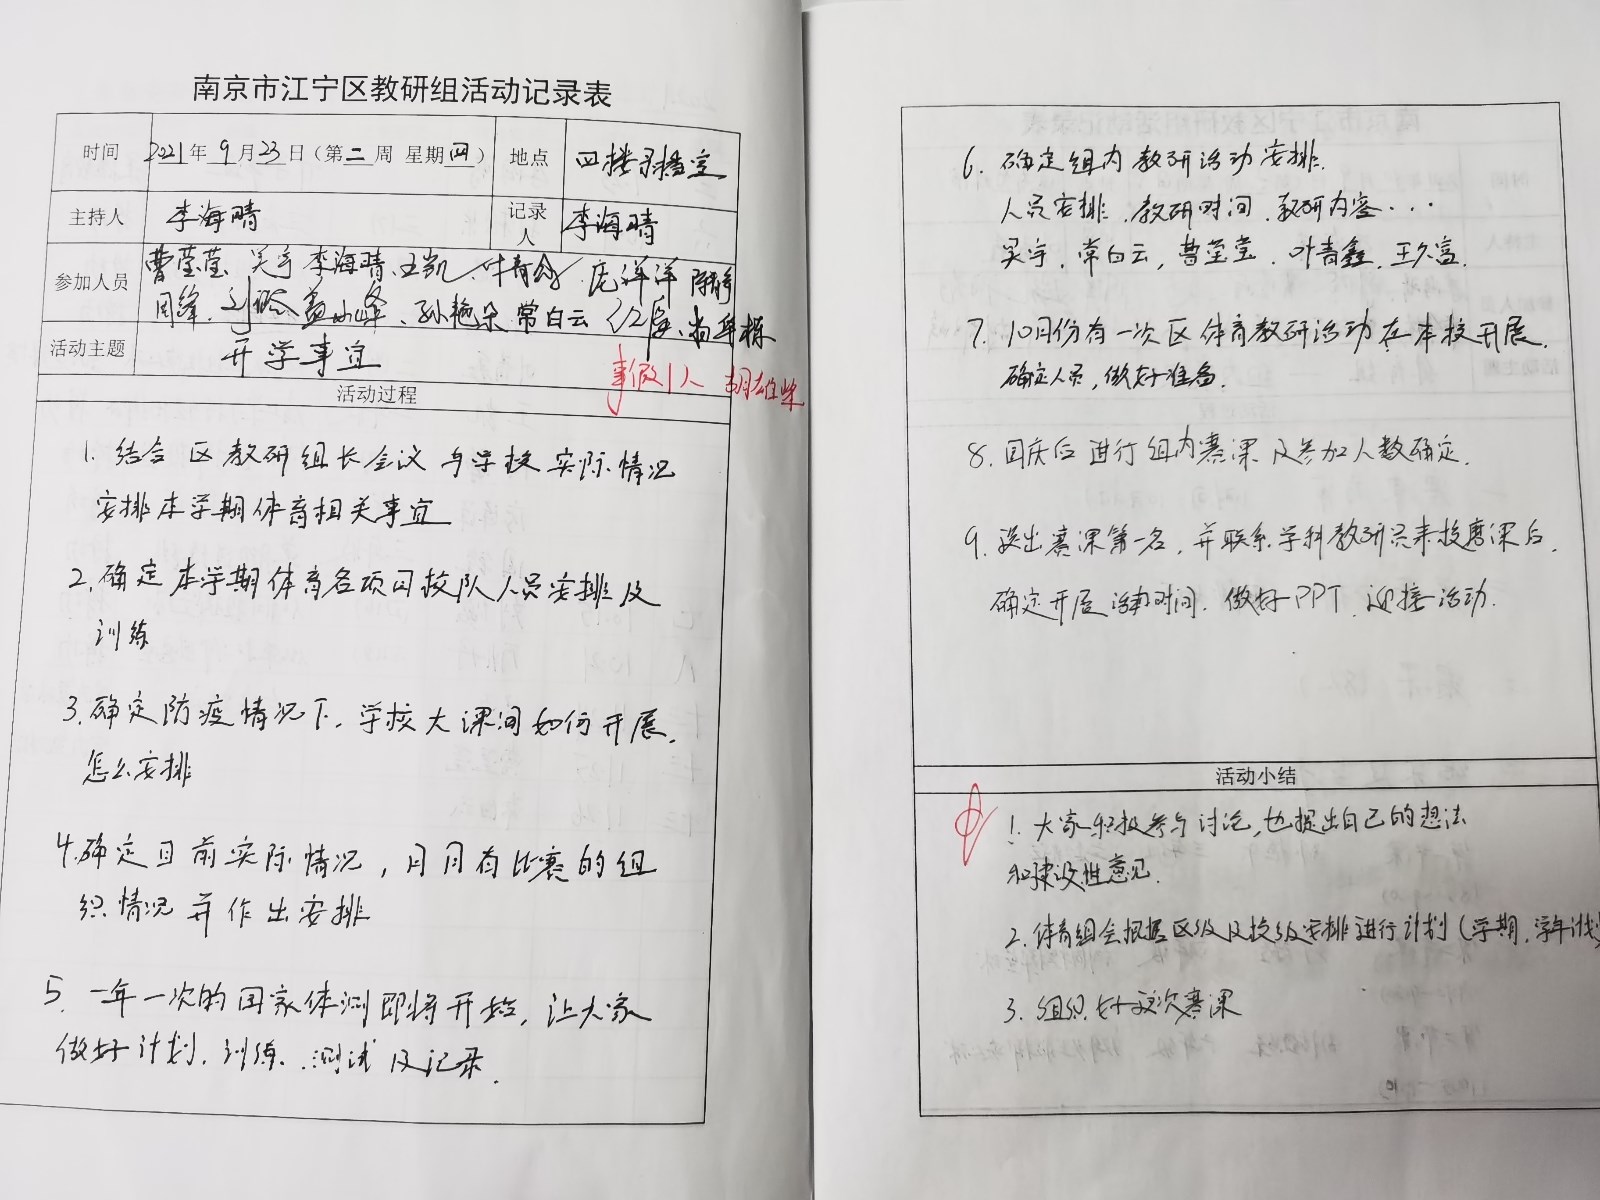 南京市江宁区教研组活动记录表
时间 2021年9月23日(第二周 星期四) 地点 四楼录播室
主持人 李海晴 记录人 李海晴
参加人员 曹莹莹、吴宇 李海晴、王凯、叶青鑫 庞洋洋
周绛、孟小峰、孙艳朵 常白云
活动主题 开学事宜
事假1人
活动过程
1. 结合区教研组长会议与学校实际情况
安排本学期体育相关事宜
2.确定本学期体育各项目校队人员安排及
训练
3.确定防疫情况下,学校大课间如何开展,
怎么安排
4.确定目前实际情况,月月有比赛的组
织情况并作出安排
5. 一年一次的国家体测即将开始,让大家
做好计划,训练、测试及记录.
6. 确定组内教研活动安排.
人员安排、教研时间、教研内容...
吴宇、常白云,曹莹莹、叶青鑫,王久富.
7. 10月份有一次区体育教研活动在本校开展.
确定人员,做好准备.
8. 国庆后进行组内赛课及参加人数确定.
9. 选出赛课第一名,并联系学科教研员来校磨课后,
确定开展活动时间.做好PPT,迎接活动.
活动小结
1. 大家积极参与讨论,也提出自己的想法
和建设性意见.
2. 体育组会根据区级及校级安排进行计划(学期,学年计划
3. 组织好这次赛课